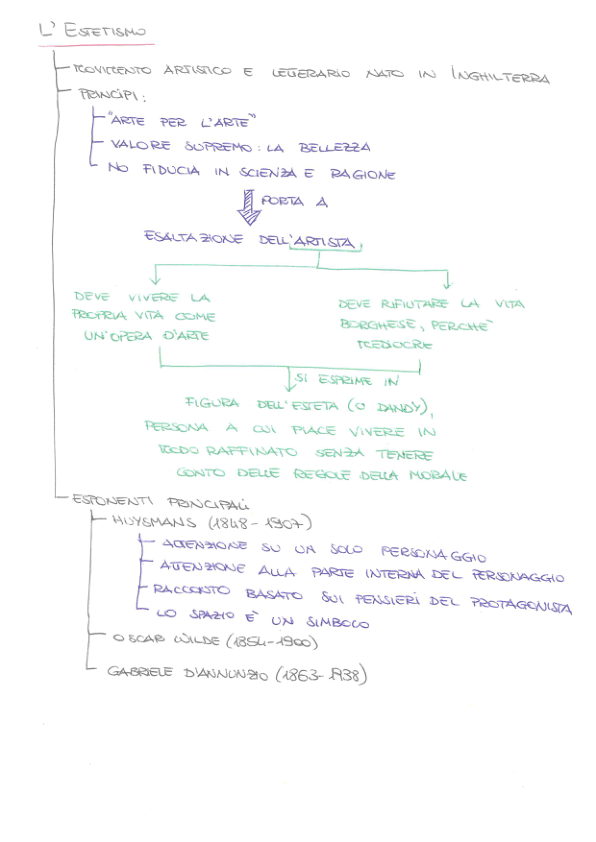 L'ESTETISMO
MOVIMENTO ARTISTICO E LETTERARIO NATO IN INGHILTERRA
PRINCIPI:
"ARTE PER L'ARTE"
VALORE SUPREMO: LA BELLEZZA
NO FIDUCIA IN SCIENZA E RAGIONE
PORTA A
ESALTAZIONE DELL'ARTISTA,
DEVE VIVERE LA
PROPRIA VITA COME
UN'OPERA D'ARTE
DEVE RIFIUTARE LA VITA
BORGHESE, PERCHE'
MEDIOCRE
SI ESPRIME IN
FIGURA DELL'ESTETA (O DANDY),
PERSONA A CUI PIACE VIVERE IN
MODO RAFFINATO SENZA TENERE
CONTO DELLE REGOLE DELLA MORALE
ESPONENTI PRINCIPALI
HUYSMANS (1848-1907)
ATTENZIONE SU UN SOLO PERSONAGGIO
ATTENZIONE ALLA PARTE INTERNA DEL PERSONAGGIO
RACCONTO BASATO SUI PENSIERI DEL PROTAGONISTA
LO SPAZIO E' UN SIMBOLO
OSCAR WILDE (1854-1900)
GABRIELE D'ANNUNZIO (1863-1938)